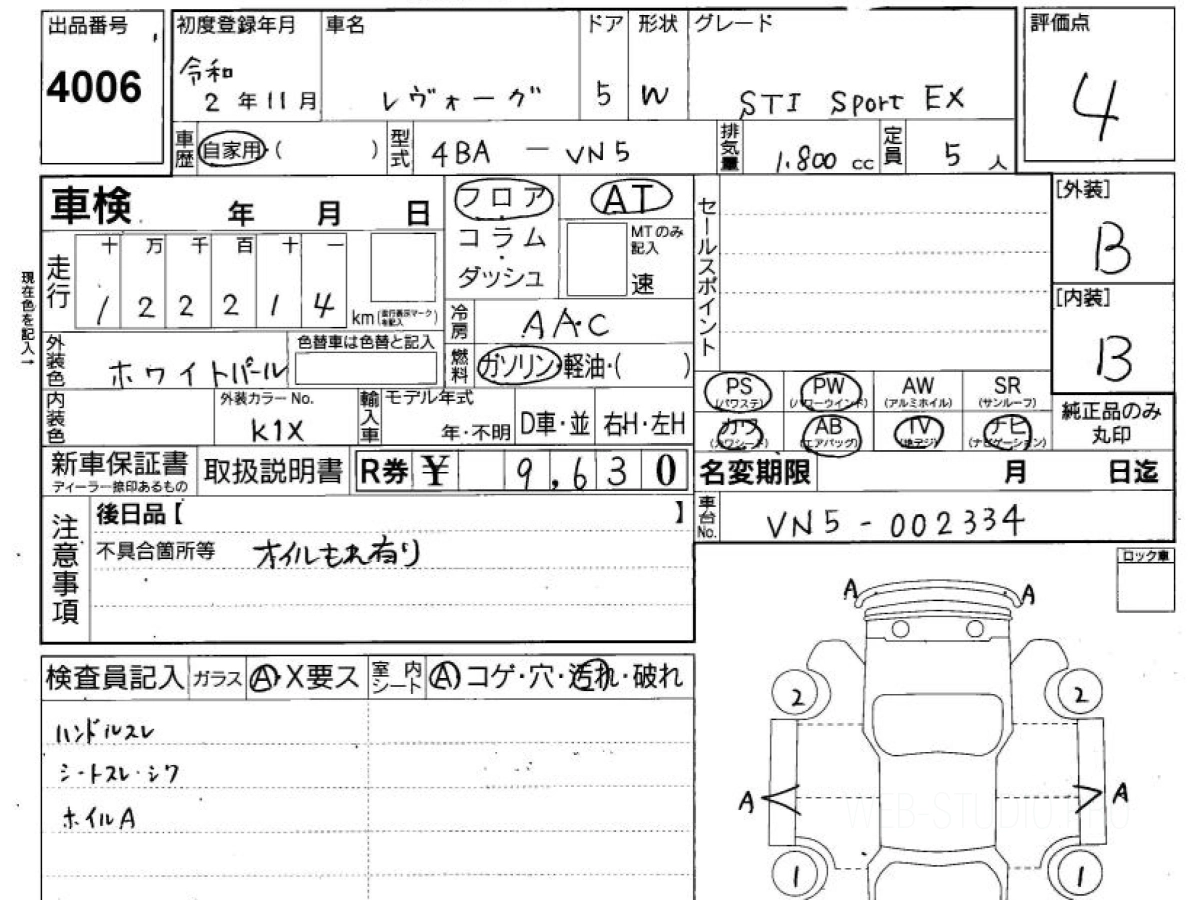 出品番号
4006
初度登録年月
令和
2 年 11 月
車名
レヴォーグ
ドア
5
形状
W
グレード
STI Sport EX
評価点
4
車歴
自家用・( )
型式
4BA - VN5
排気量
1.800 cc
定員
5 人
車検 年 月 日
走行
十 万 千 百 十 一
1 2 2 2 1 4
km(走行表示マークを記入)
現在色を記入→
フロア
・
コラム
・
ダッシュ
AT
MTのみ記入
速
冷房
AAC
燃料
ガソリン・軽油・( )
セールスポイント
[外装]
B
[内装]
B
外装色
ホワイトパール
色替車は色替と記入
内装色
外装カラーNo.
K1X
輸入車
モデル年式
年・不明
D車・並
右H・左H
PS
(パワステ)
PW
(パワーウインド)
AW
(アルミホイル)
SR
(サンルーフ)
カワ
(カワシート)
AB
(エアバッグ)
TV
(地デジ)
ナビ
(ナビゲーション)
純正品のみ
丸印
新車保証書
ディーラー捺印あるもの
取扱説明書
R券 ¥ 9,630
名変期限 月 日迄
車台No.
VN5-002334
注意事項
後日品【 】
不具合箇所等 オイルもれ有り
ロック車
検査員記入
ガラス
A・X要ス
室内シート
A コゲ・穴・汚れ・破れ
ハンドルスレ
シートスレ・シワ
ホイルA
A
A
2
2
A
A
1
1
WEB-STUDIO.PRO